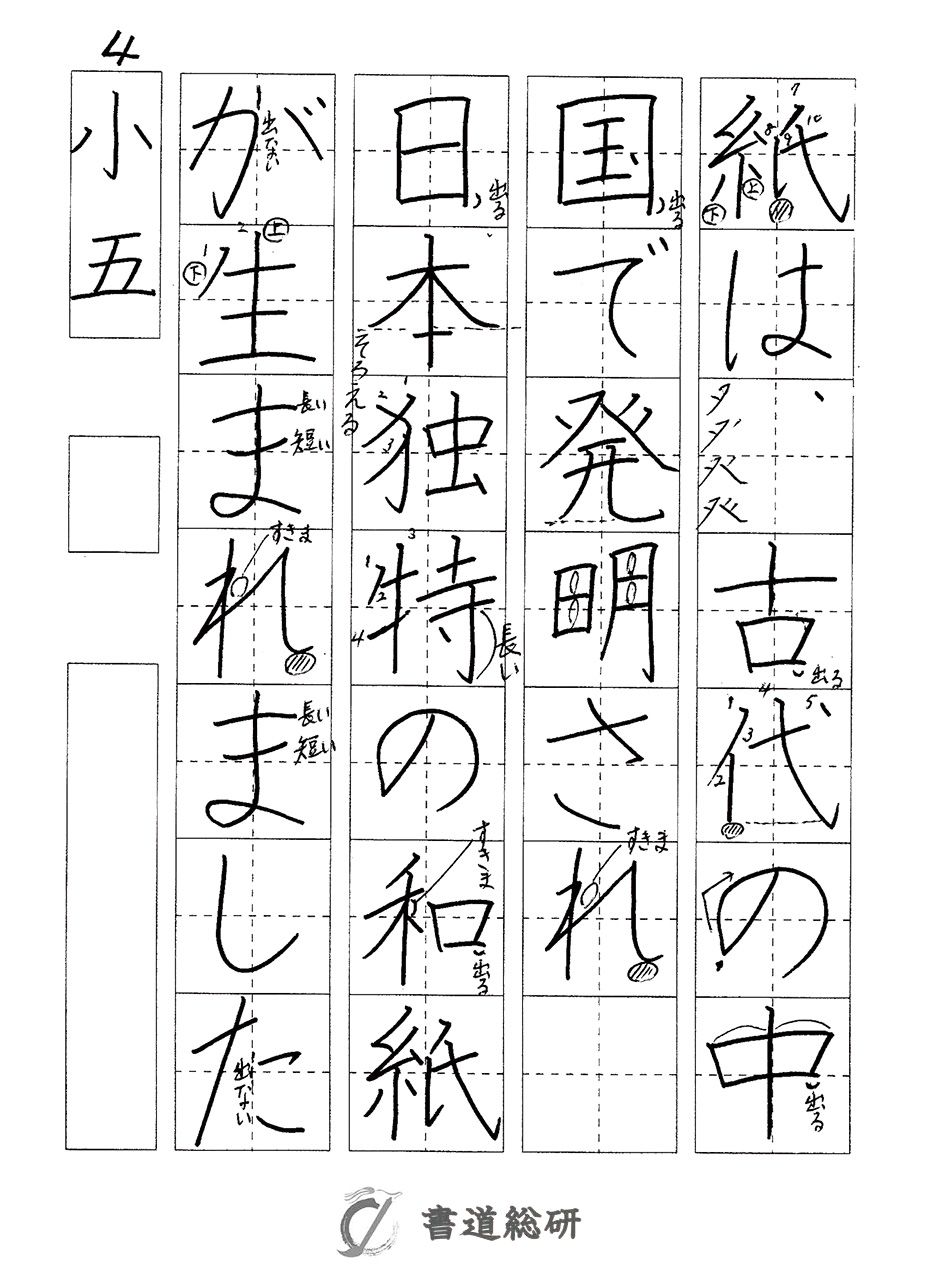 紙は、古代の中
国で発明され
日本独特の和紙
が生まれました
4
小五
7
8
9
10
上
下
タ
ダ
癶
出る
1
2
3
4
5
出る
出る
すきま
出る
そろえる
1
2
3
1
2
3
4
長い
すきま
出る
出ない
1
2
上
下
長い
短い
すきま
長い
短い
出ない
書道総研